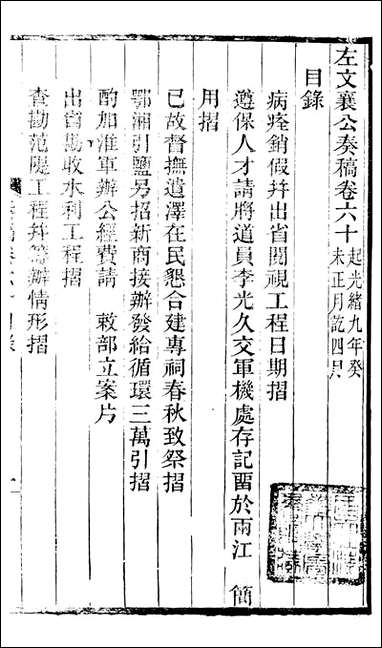 左文襄公奏稿卷六十
起光緒九年癸
未正月訖四月
目錄
病痊銷假幷出省閱視工程日期摺
遵保人才請將道員李光久交軍機處存記畱於兩江 簡
用摺
已故督撫遺澤在民懇合建專祠春秋致祭摺
鄂湘引鹽另招新商接辦發給循環三萬引摺
酌加淮軍辦公經費請 敕部立案片
出省勘收水利工程摺
查勘范隄工程幷籌辦情形摺